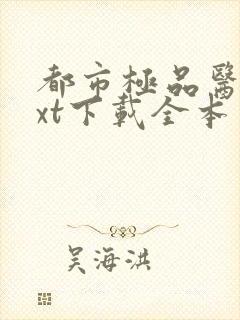 都市極品醫
xt下載全本
吴海洪